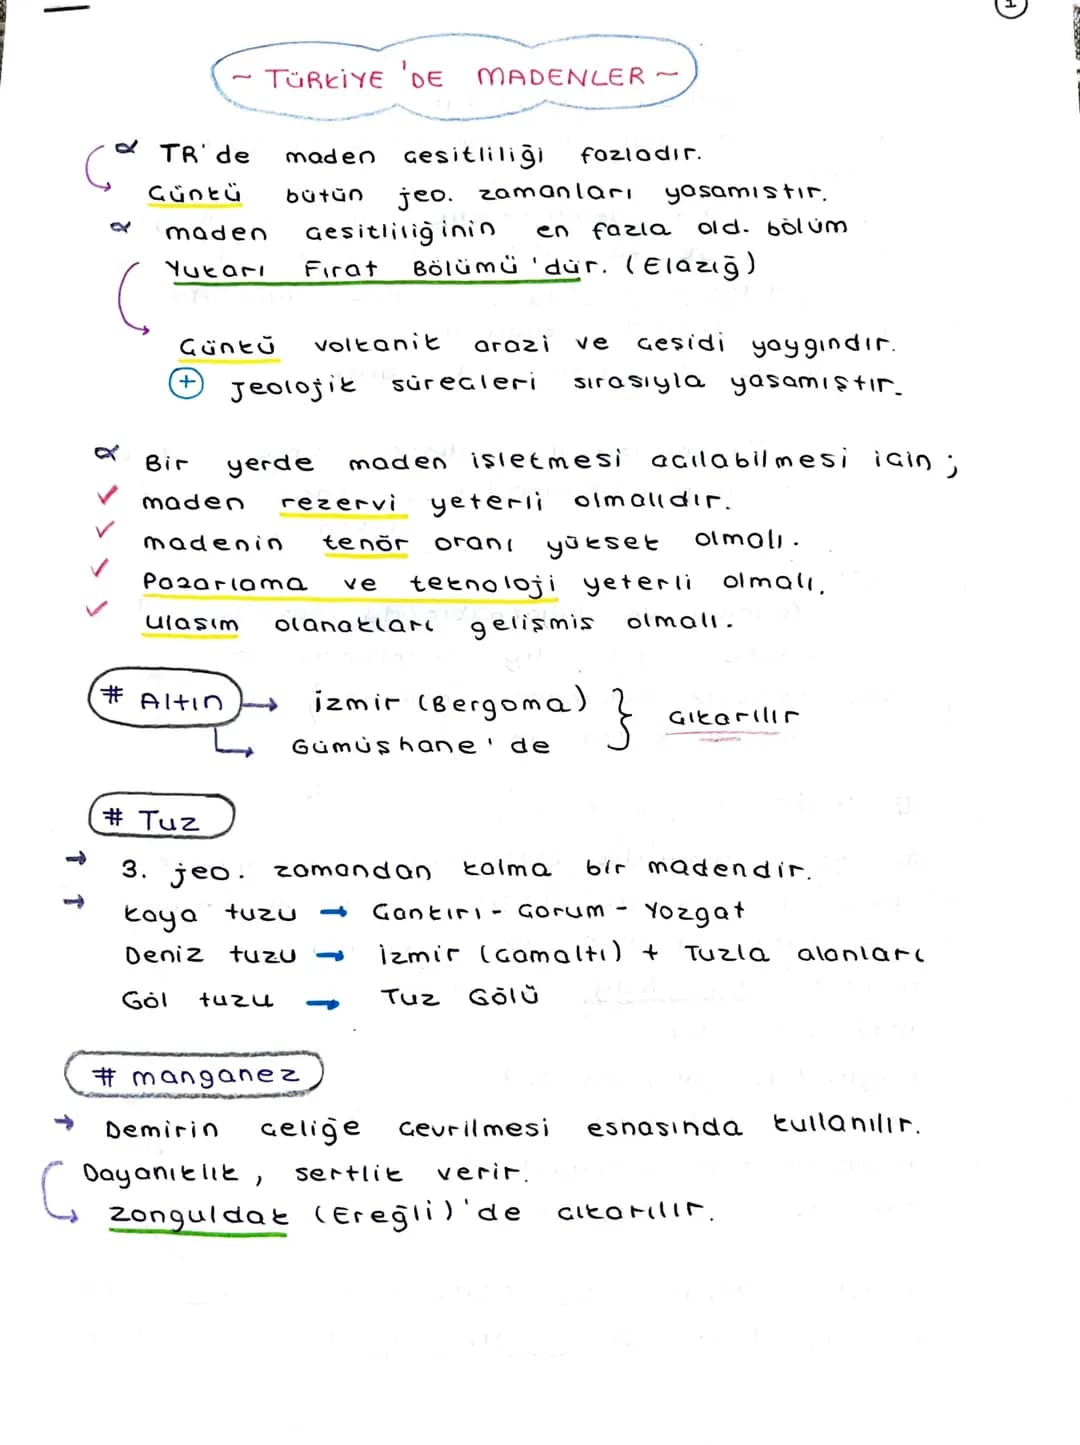 1
~ TÜRKİYE'DE MADENLER ~
TR'de maden çeşitliliği fazladır.
Çünkü bütün jeo. zamanları yaşamıştır.
maden çeşitliliğinin en fazla old. bölüm
Yukarı Fırat Bölümü'dür. (Elazığ)
Çünkü volkanik arazi ve çeşidi yaygındır.
+ Jeolojik süreçleri sırasıyla yaşamıştır.
Bir yerde maden işletmesi açılabilmesi için;
✓ maden rezervi yeterli olmalıdır.
✓ madenin tenör oranı yüksek olmalı.
✓ Pazarlama ve teknoloji yeterli olmalı.
✓ ulaşım olanakları gelişmiş olmalı.
# Altın → İzmir (Bergama) } Çıkarılır
↳ Gümüşhane'de
# Tuz
→ 3. jeo. zamandan kalma bir madendir.
→ kaya tuzu → Çankırı - Çorum - Yozgat
Deniz tuzu → İzmir (Çamaltı) + Tuzla alanları
Göl tuzu → Tuz Gölü
# manganez
→ Demirin çeliğe çevrilmesi esnasında kullanılır.
Dayanıklık, sertlik verir.
Zonguldak (Ereğli)'de çıkarılır.